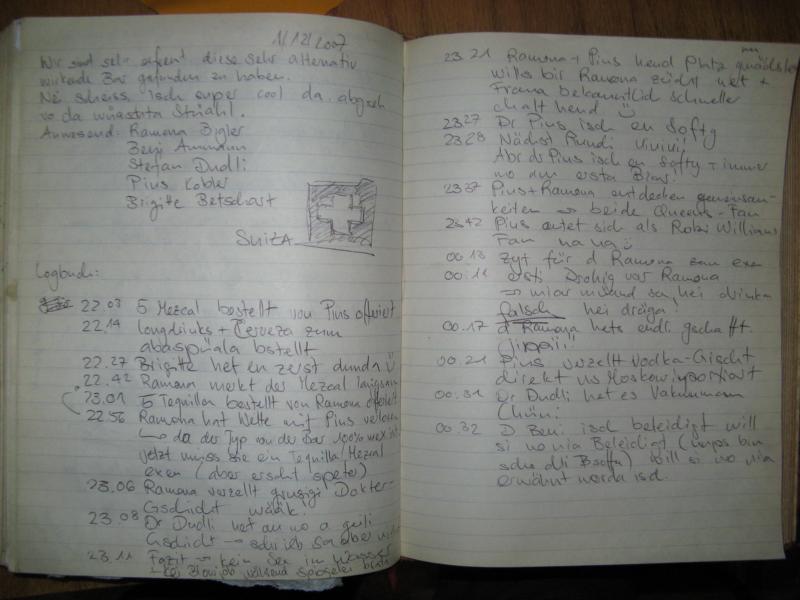 1/12/2007
Wir sind sehr erfreut diese sehr alternativ
wirkende Bar gefunden zu haben.
Nei scheiss, isch super cool da, abgseh
vo da wüaschta Stüahl.
Anwesend: Ramona Bigler
Benj Ammann
Stefan Dudli
Pius Kobler
Brigitte Betschart
SUIZA
Logbuch:
22.03 5 Mezcal bestellt von Pius offeriert
22.14 Longdrinks + Cerveza zum
abaspüala bstellt
22.27 Brigitte het en zerst dunda ü
22.42 Ramona merkt der Mezcal langsam
23.01 5 Tequilla bestellt von Ramona offeriert
22.56 Ramona hat Wette mit Pius verloren
↳ da der Typ von der Bar 100% mex. ist
jetzt muss sie ein Tequilla/Mezcal
exen (aber ersch speter)
23.06 Ramona verzellt grusigi Doktor-
Gschicht wääk!
23.08 Dr Dudli het au no a geili
Gschicht → schrieb
23.11 Fazit → kein Sex im Wasser
23.21 Ramona + Pius hend Platz
wills bir Ramona zücht het +
Fraua bekanntlich schneller
chalt hend ü
23.27 Dr Pius isch en Softy
23.28 Nächst Rundi Vivivi!
Abr dr Pius isch en Softy + immer
no am ersta Bier!
23.37 Pius + Ramona entdecken gemeinsam-
keiten → beide Queens-Fan
23.42 Pius outet sich als Robi Williams
Fan na na ü
00.13 Zyt für d Ramona zum exen
00.14 ersti Drohig vor Ramona
falsch hei
00.17 d Ramona hets endl. gschafft.
(jippii!)
00.21 Pius verzellt Vodka-Gschicht
direkt us Moskow importiert
00.31 Dr Dudli het es Vakuum
00.32 D Beni isch beleidigt will
si no nia Beleidigt
will si no nia
erwähnt worda isch.